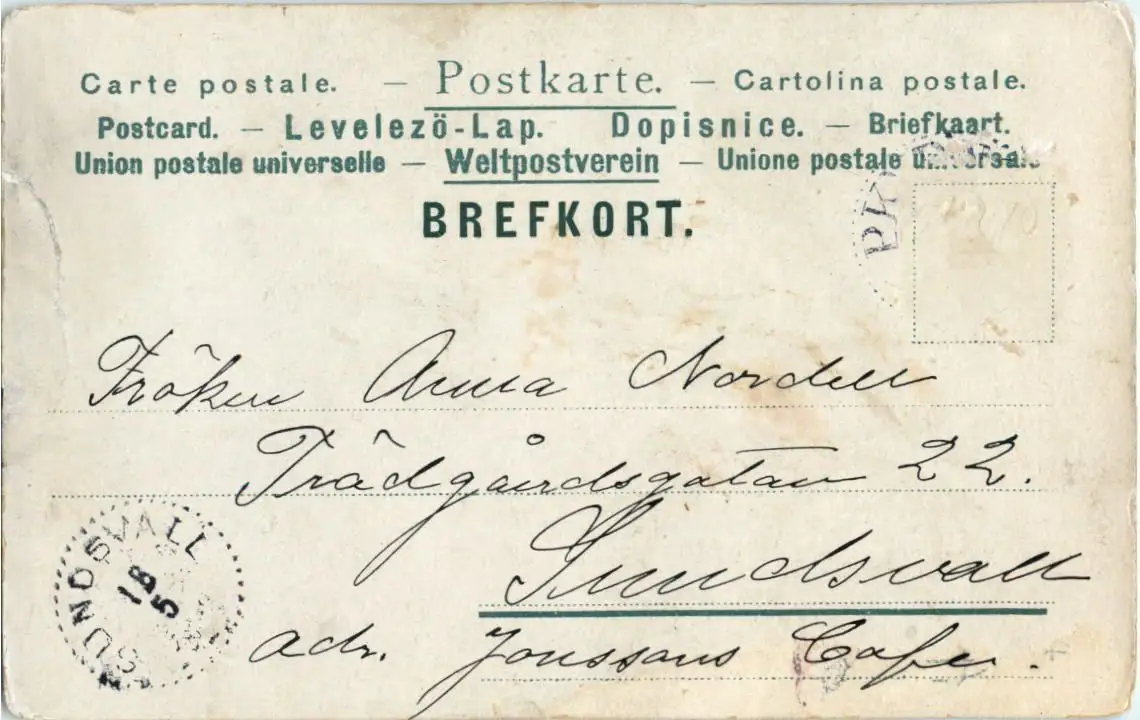 Carte postale. — Postkarte. — Cartolina postale.
Postcard. — Levelezö-Lap. Dopisnice. — Briefkaart.
Union postale universelle — Weltpostverein — Unione postale universale
BREFKORT.
PK
Fröken Anna Nordell
Trädgårdsgatan 22.
Sundsvall
adr. Jonssons Cafe.
SUNDSVALL
18
5